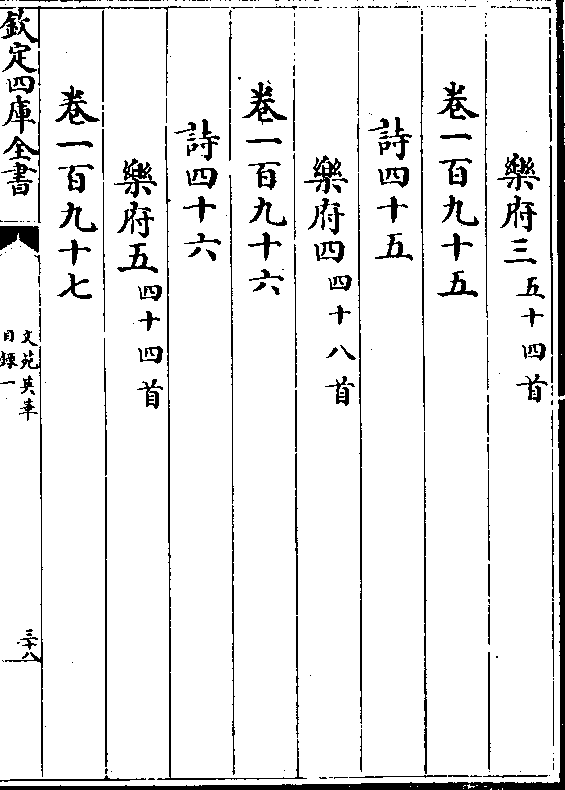 樂府三五十四首
卷一百九十五
詩四十五
樂府四四十八首
卷一百九十六
詩四十六
樂府五四十四首
卷一百九十七
欽定四庫全書
文苑英華
目録一
三十八